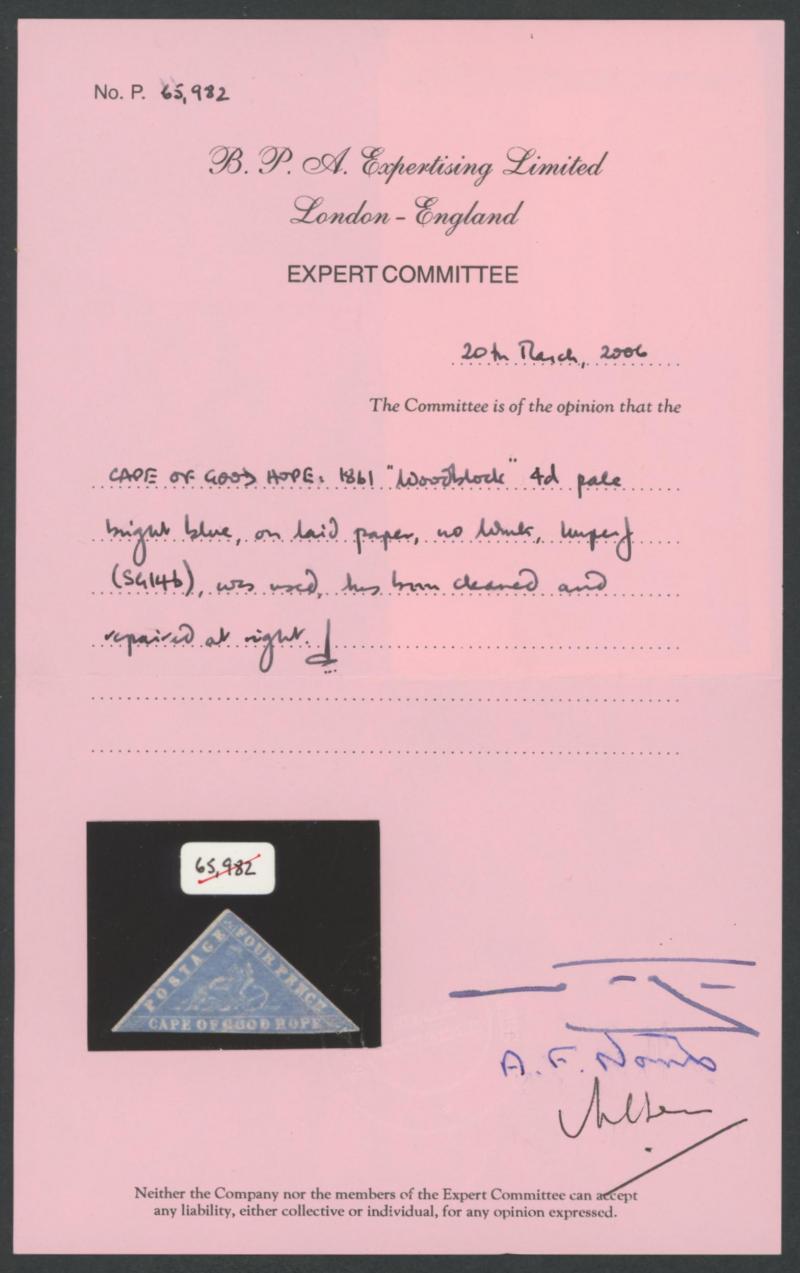 No. P. 65,982
B. P. A. Expertising Limited
London - England
EXPERT COMMITTEE
20th March, 2006
The Committee is of the opinion that the
CAPE OF GOOD HOPE: 1861 "Woodblock" 4d pale
bright blue, on laid paper, no wmk, imperf
(SG14b), was used, has been cleaned and
repaired at right.
65,982
POSTAGE FOUR PENCE
CAPE OF GOOD HOPE
A. F.
Neither the Company nor the members of the Expert Committee can accept
any liability, either collective or individual, for any opinion expressed.